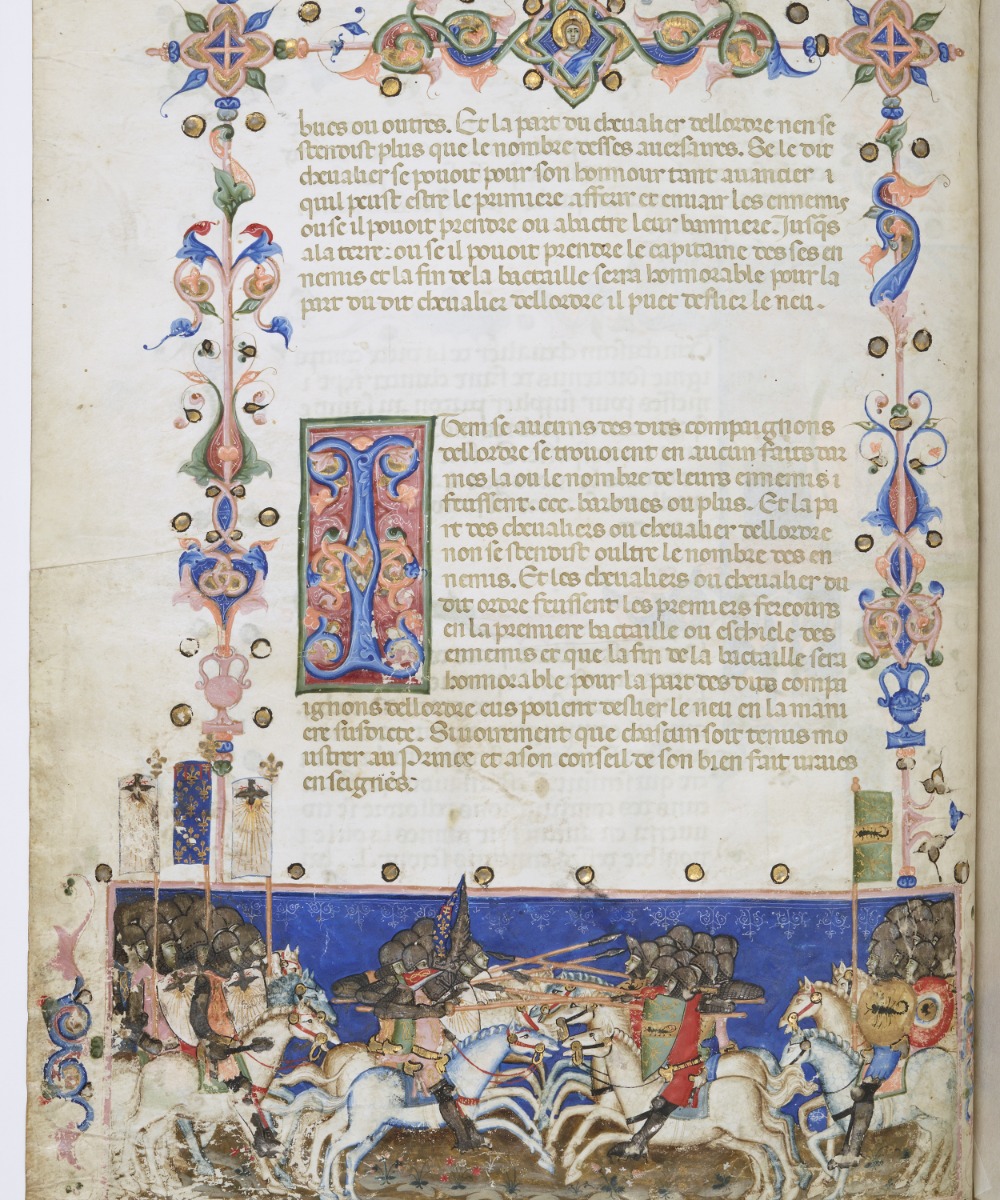 bues ou outres. Et la part du chevalier dellordre nen se
stendist plus que le nombre desses aversaires. Se le dit
chevalier se povoit pour son honnour tant avancier i
quil peust estre le primiere affeur et envair les ennemis
ou se il pouoit prendre ou abuctre leur banniere. Jusqs
a la terre. ou se il pouoit prendre le capitaine des ses en
nemis et la fin de la bactaille serra honnorable pour la
part du dit chevalier dellordre il puet deslier le neu.
Item se aucuns des dits compaignons
dellordre se trouoient en aucun faits dar
mes la ou le nombre de leurs ennemis i
feussent. ccc. barbues ou plus. Et la pa
rt des chevaliers ou chevalier dellordre
non se stendist oultre le nombre des en
nemis. Et les chevaliers ou chevalier du
dit ordre feussent les premiers fercours
en la premiere bactaille ou eschiele des
ennemis et que la fin de la bactaille sera
honnorable pour la part des dits compa
ignons dellordre eus poient deslier le neu en la mani
ere susdicte. Sivoirement que chascun soit tenus mo
ustrer au Prince et a son conseil de son bien fait vraies
enseignes.